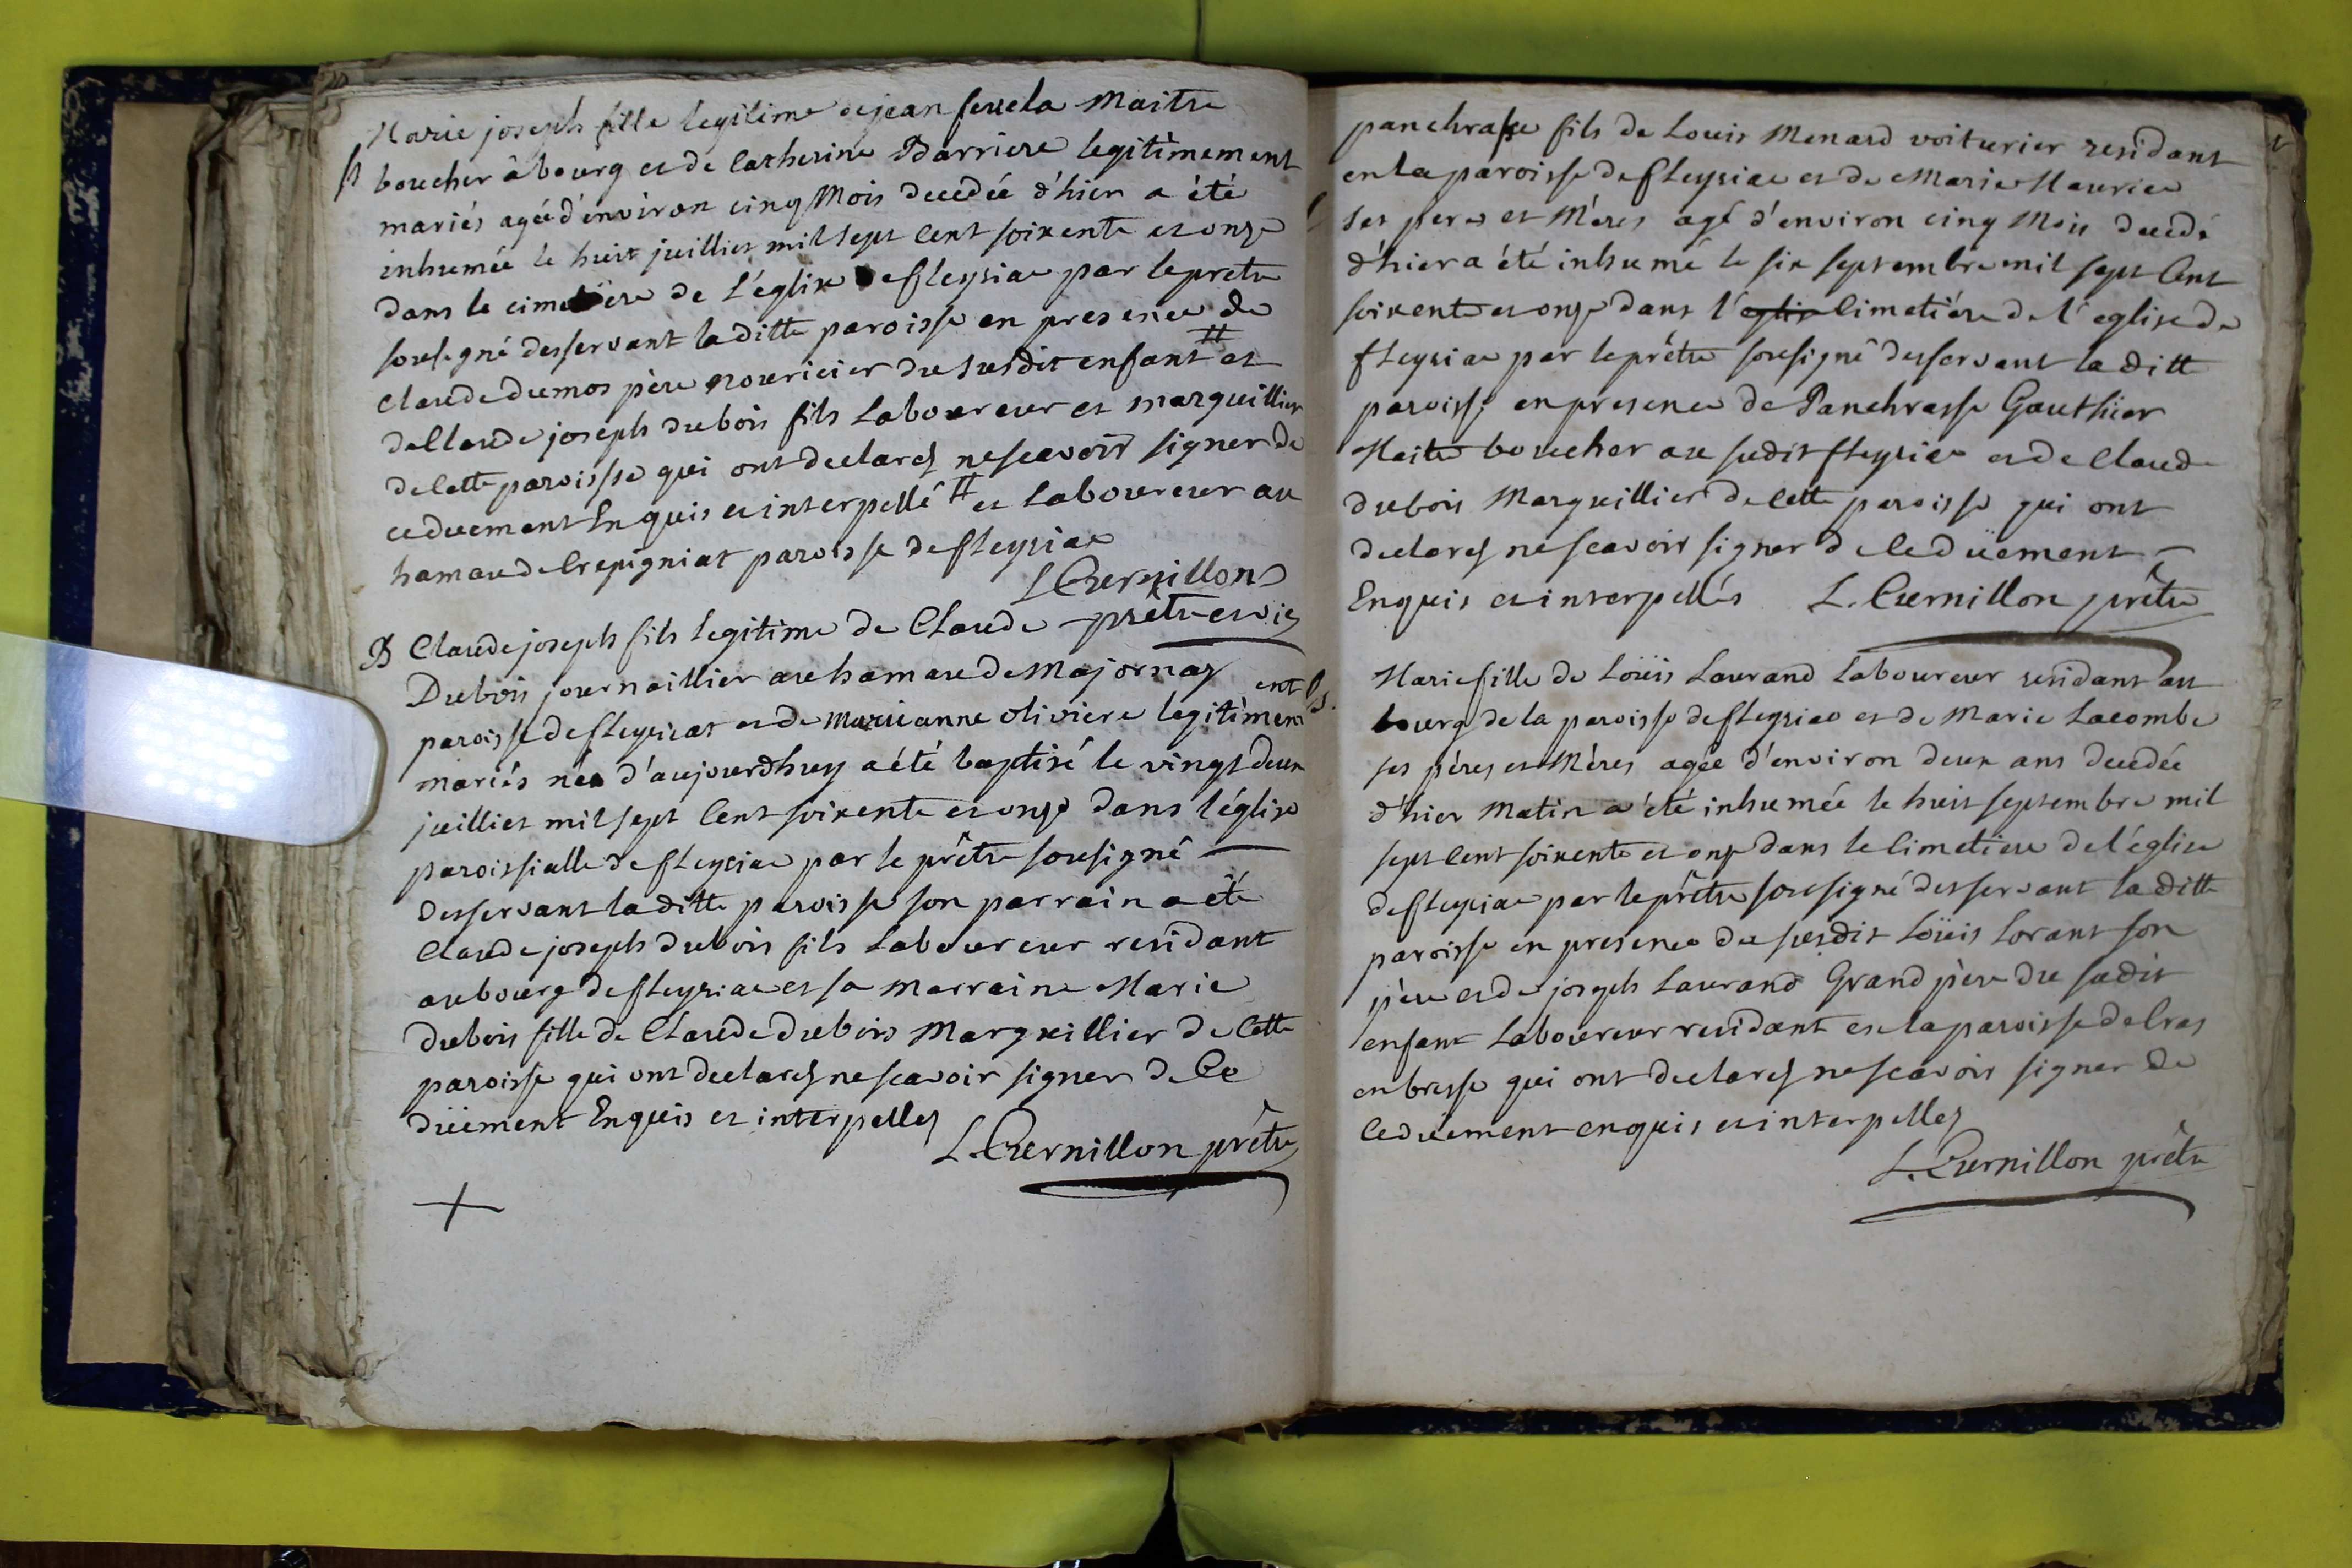 Marie joseph fille legitime de jean feuela Maitre
S boucher à bourg et de Catherine Barriere legitimement
mariés agée d'environ cinq Mois decedée d'hier a été
inhumée le huit juilliet mil sept Cent soixente et onze
dans le cimetiere de L'église de fleysiac par le pretre
sousigné desservant laditte paroisse en presence de
Claude dumos père nouricier du susdit enfant # et
de Claude joseph dubois fils Laboureur et marguillier
de Cette paroisse qui ont declarez ne scavoir signer de
ce duement Enquis et interpellé # et Laboureur au
hamau de Crepigniat paroisse de fleysiac
L Cuernillon
prêtre et vic
B Claude joseph fils legitime de Claude
Dubois journaillier au hamau de Majornaz
paroisse de fleysiat et de Marieanne oliviere legitimement
mariés née d'aujourdhuy a été baptisé le vingt deux
juilliet mil sept Cent soixente et onze dans l'église
paroissialle de fleysiac par le prêtre sousigné
desservant la ditte paroisse son parrain a été
Claude joseph dubois fils Laboureur residant
au bourg de fleysiac et sa marraine Marie
dubois fille de Claude dubois Marguillier de Cette
paroisse qui ont declarez ne scavoir signer de Ce
düement Enquis et interpellez
L. Cuernillon prêtre
panchrasse fils de Louis Menard voiturier residant
en la paroisse de fleysiac et de Marie Maurice
ses peres et Mères agé d'environ cinq Mois decedé
d'hier a été inhumé le six septembre mil sept Cent
soixente et onze dans l'eglis Cimetiére de l'eglise de
fleysiac par le prêtre sousigné desservant la ditte
paroisse en presence de Panchrasse Gauthier
Maitre boucher au sudit fleysiac et de Claude
dubois Marguillier de Cette paroisse qui ont
declarez ne scavoir signer de Ce düement
Enquis et interpellés L. Cuernillon prêtre
S. Marie fille de Loüis Laurand Laboureur residant au
bourg de la paroisse de fleysiac et de Marie Lacombe
ses péres et Mères agée d'environ deux ans decedée
d'hier Matin a été inhumée le huit septembre mil
sept Cent soixente et onze dans le Cimetiere de l'église
de fleysiac par le prêtre sousigné desservant la ditte
paroisse en presence du susdit Loüis Lorant son
père et de joseph Laurand Grand père du sudit
enfant Laboureur residant en la paroisse de Cras
en bresse qui ont declarez ne scavoir signer de
Ce duement enquis et interpellez
L. Cuernillon prêtre